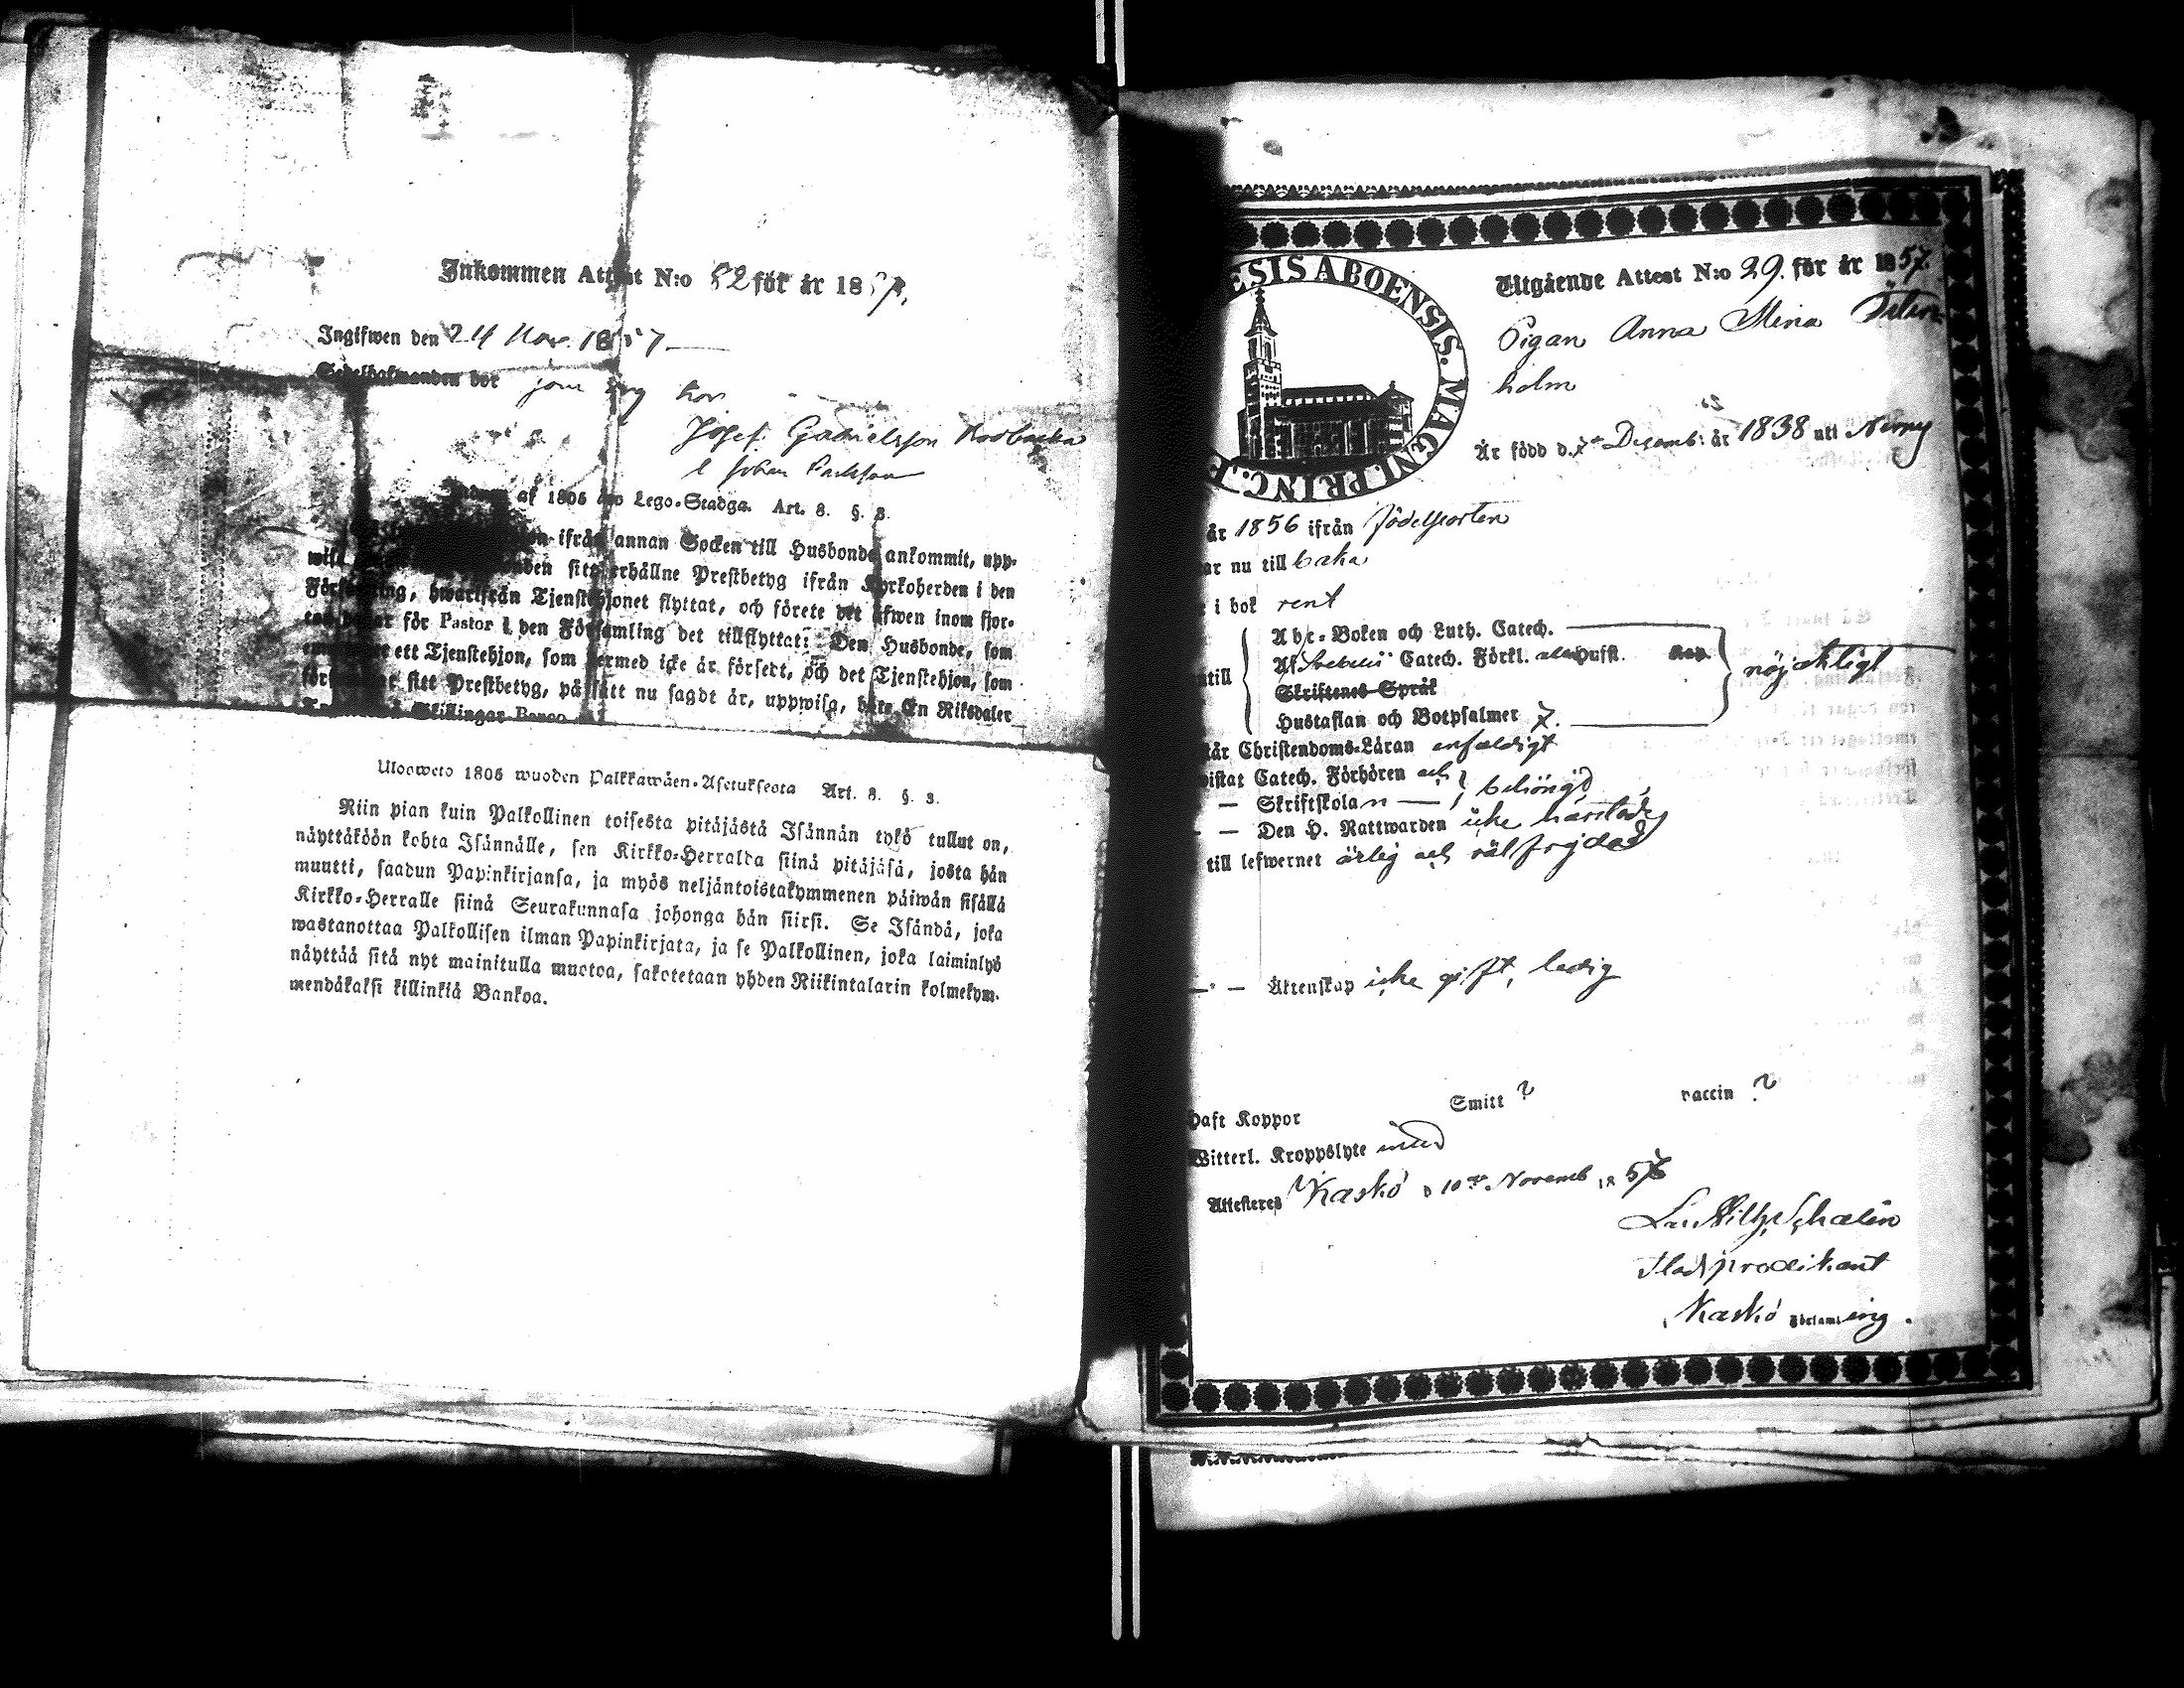 Inkommen Attest N:o 52 för år 1857.
Ingifwen den 24 Nov. 1857
Sedelhafwanden bor
Josef Gabrielsson
af 1805 Lego-Stadga. Art. 8. §. 3.
ifrån annan Socken till Husbonde ankommit, upp-
sitt erhållne Prestbetyg ifrån Kyrkoherden i den
Församling, hwarifrån Tjenstehjonet flyttat, och förete det äfwen inom fjor-
för Pastor i den Församling det tillflyttat; Den Husbonde, som
ett Tjenstehjon, som dermed icke är försedt, och det Tjenstehjon, som
sitt Prestbetyg, på sätt nu sagdt är, uppwisa, böte En Riksdaler
Skillingar Banco
Ulosweto 1805 wuoden Palkkawäen-Asetuksesta Art. 8. §. 3.
Niin pian kuin Palkollinen toisesta pitäjästä Isännän tykö tullut on,
näyttäköön kohta Isännälle, sen Kirkko-Herralda siinä pitäjäsä, josta hän
muutti, saadun Papinkirjansa, ja myös neljäntoistakymmenen päiwän sisällä
Kirkko-Herralle siinä Seurakunnasa johonga hän siirsi. Se Isändä, joka
wastanottaa Palkollisen ilman Papinkirjata, ja se Palkollinen, joka laiminlyö
näyttää sitä nyt mainitulla muotoa, sakotetaan yhden Riikintalarin kolmekym-
mendäkaksi killinkiä Bankoa.
ESIS ABOENSIS. MAGNI PRINC. F
Utgående Attest N:o 29. för år 1857.
Pigan Anna Stina
holm
Är född d. Decemb: år 1838 uti
år 1856 ifrån födelseorten
nu till baka
i bok rent
Abc-Boken och Luth. Catech.
Af Svebelii Catech. Förkl. Hufst. Kap. nöjaktligt
till
Skriftenes Språk
Hustaflan och Botpsalmer 7.
Christendoms-Läran enfaldigt
Catech. Förhören och
— Skriftskolan — behörigt
— Den H. Nattwarden icke
till lefwernet ärlig och väl frejdad
— Äktenskap icke gift, ledig
Haft Koppor Smitt ? vaccin ?
Witterl. Kroppslyte
Attesteres Kaskö d 10de Novemb. 18 57
Schalin
Stadspredikant
Kaskö Församling.